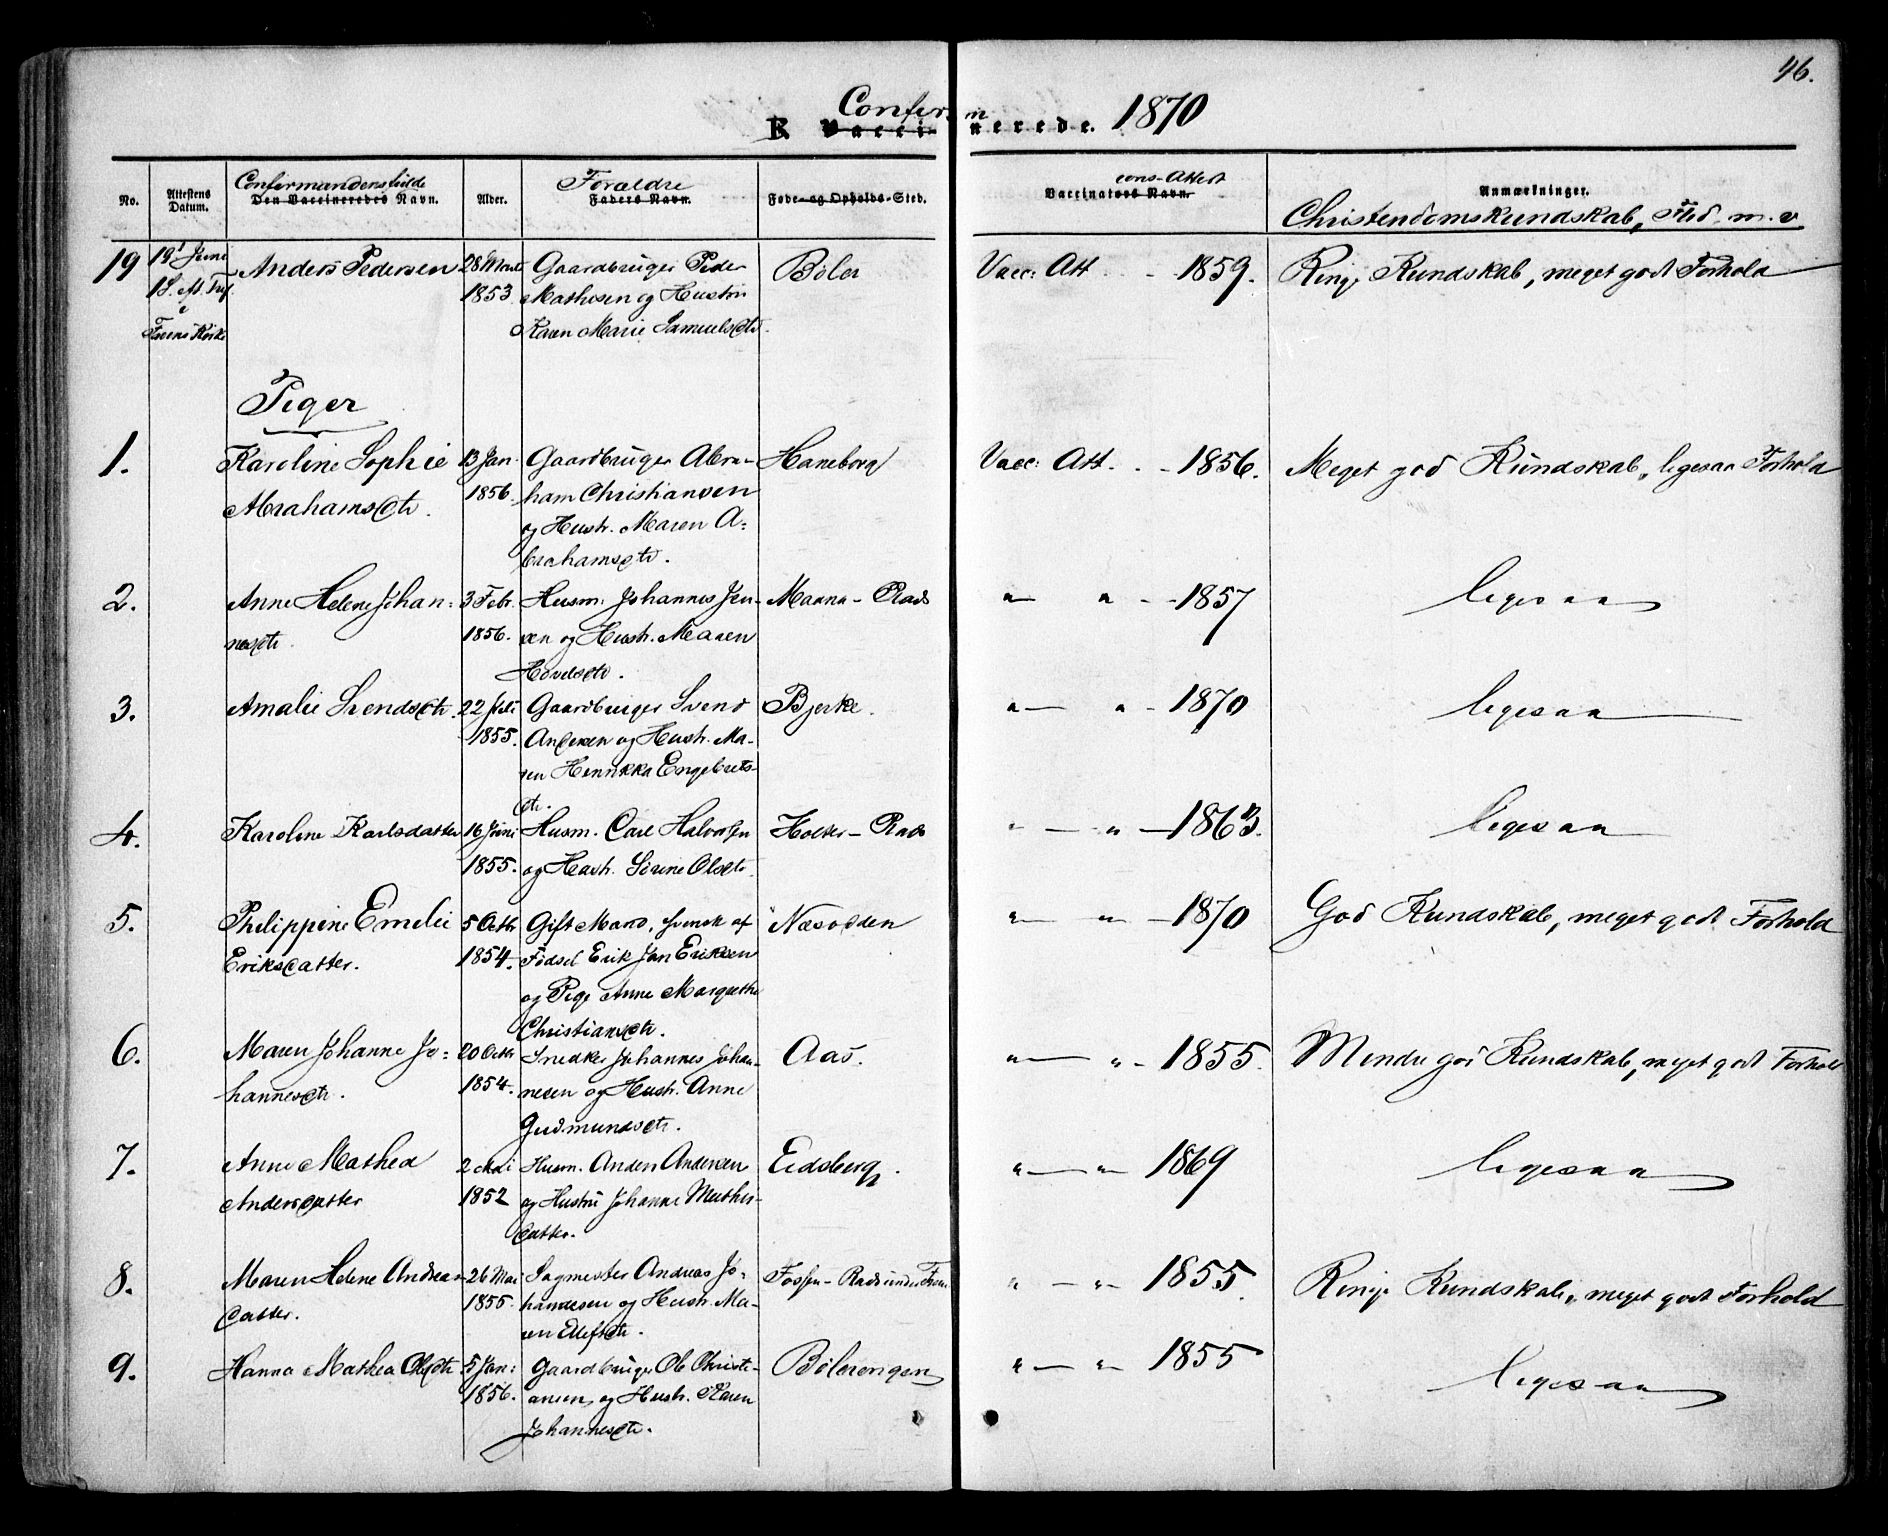 46.
Confirm
K Vaccinerede. 1870
Confermandens fulde
Forældre
cons-Attest
No.
Attestens Datum.
Den Vaccineredes Navn.
Alder.
Faders Navn.
Føde- og Opholds-Sted.
Vaccinators Navn.
Anmærkninger.
Christendomskundskab, Flid m. v.
19 19 Juni Anders Pedersen 28 Gaardbruger Peder Böler Vacc: Att - - 1859. Ring. Kundskab, meget godt Forhold
1853. Mathisen og Hustru
Karen Marie Samuelsdtr.
Piger
1. Karoline Sophie 13 Jan. Gaardbruger Abra- Haneborg Vacc: Att. - - 1856. Meget god Kundskab, ligesaa Forhold
Abrahamsdtr. 1856. ham Christiansen
og Hustr. Maren A-
brahamsdtr.
2. Anne Helene Johan- 3 Febr. Husm. Johannes Jen- Manna-Plads " " - - 1857 ligesaa
nesdtr. 1856. sen og Hustr. Maren
Hovelsdtr.
3. Amalie Svendsdtr. 22 Juli Gaardbruger Svend Bjerke. " " - 1870 ligesaa
1855. Andersen og Hustr. Ma-
ren Henrikka Engebrets-
dtr.
4. Karoline Karlsdatter 16 Juni Husm. Carl Halvorsen Holter-Plads " " - 1863. ligesaa
1855. og Hustr. Sörine Olsdtr.
5. Philippine Emelie 5 Octbr. Gift Mand, svensk af Næsodden " " - 1870 God Kundskab, meget godt Forhold
Eriksdatter. 1854. Födsel Erik Jan Eriksen
og Pige Anne Margrethe
Christiansdtr.
6. Maren Johanne Jo- 20 Octbr. Snedker Johannes Johan- Aas. " " - 1855. Mindre god Kundskab, meget godt Forhold
hannesdtr. 1854. nesen og Hustr. Anne
Gudmundsdtr.
7. Anne Mathea 2 Mai Husm. Anders Andersen Eidsberg. " " 1869 ligesaa
Andersdatter 1852 og Hustru Johanne Mathis-
datter.
8. Maren Helene Andrea- 26 Mai Sagmester Andreas Jo- Fossen-Plads under " - " 1855. Ring. Kundskab, meget godt Forhold
datter. 1855. hannesen og Hustr. Ma-
ren Elefsdtr.
9. Hanna Mathea Olesdtr. 5 Jan: Gaardbruger Ole Christi- Bölerengen " " 1855 ligesaa
1856. ansen og Hustr. Karen
Johannesdtr.